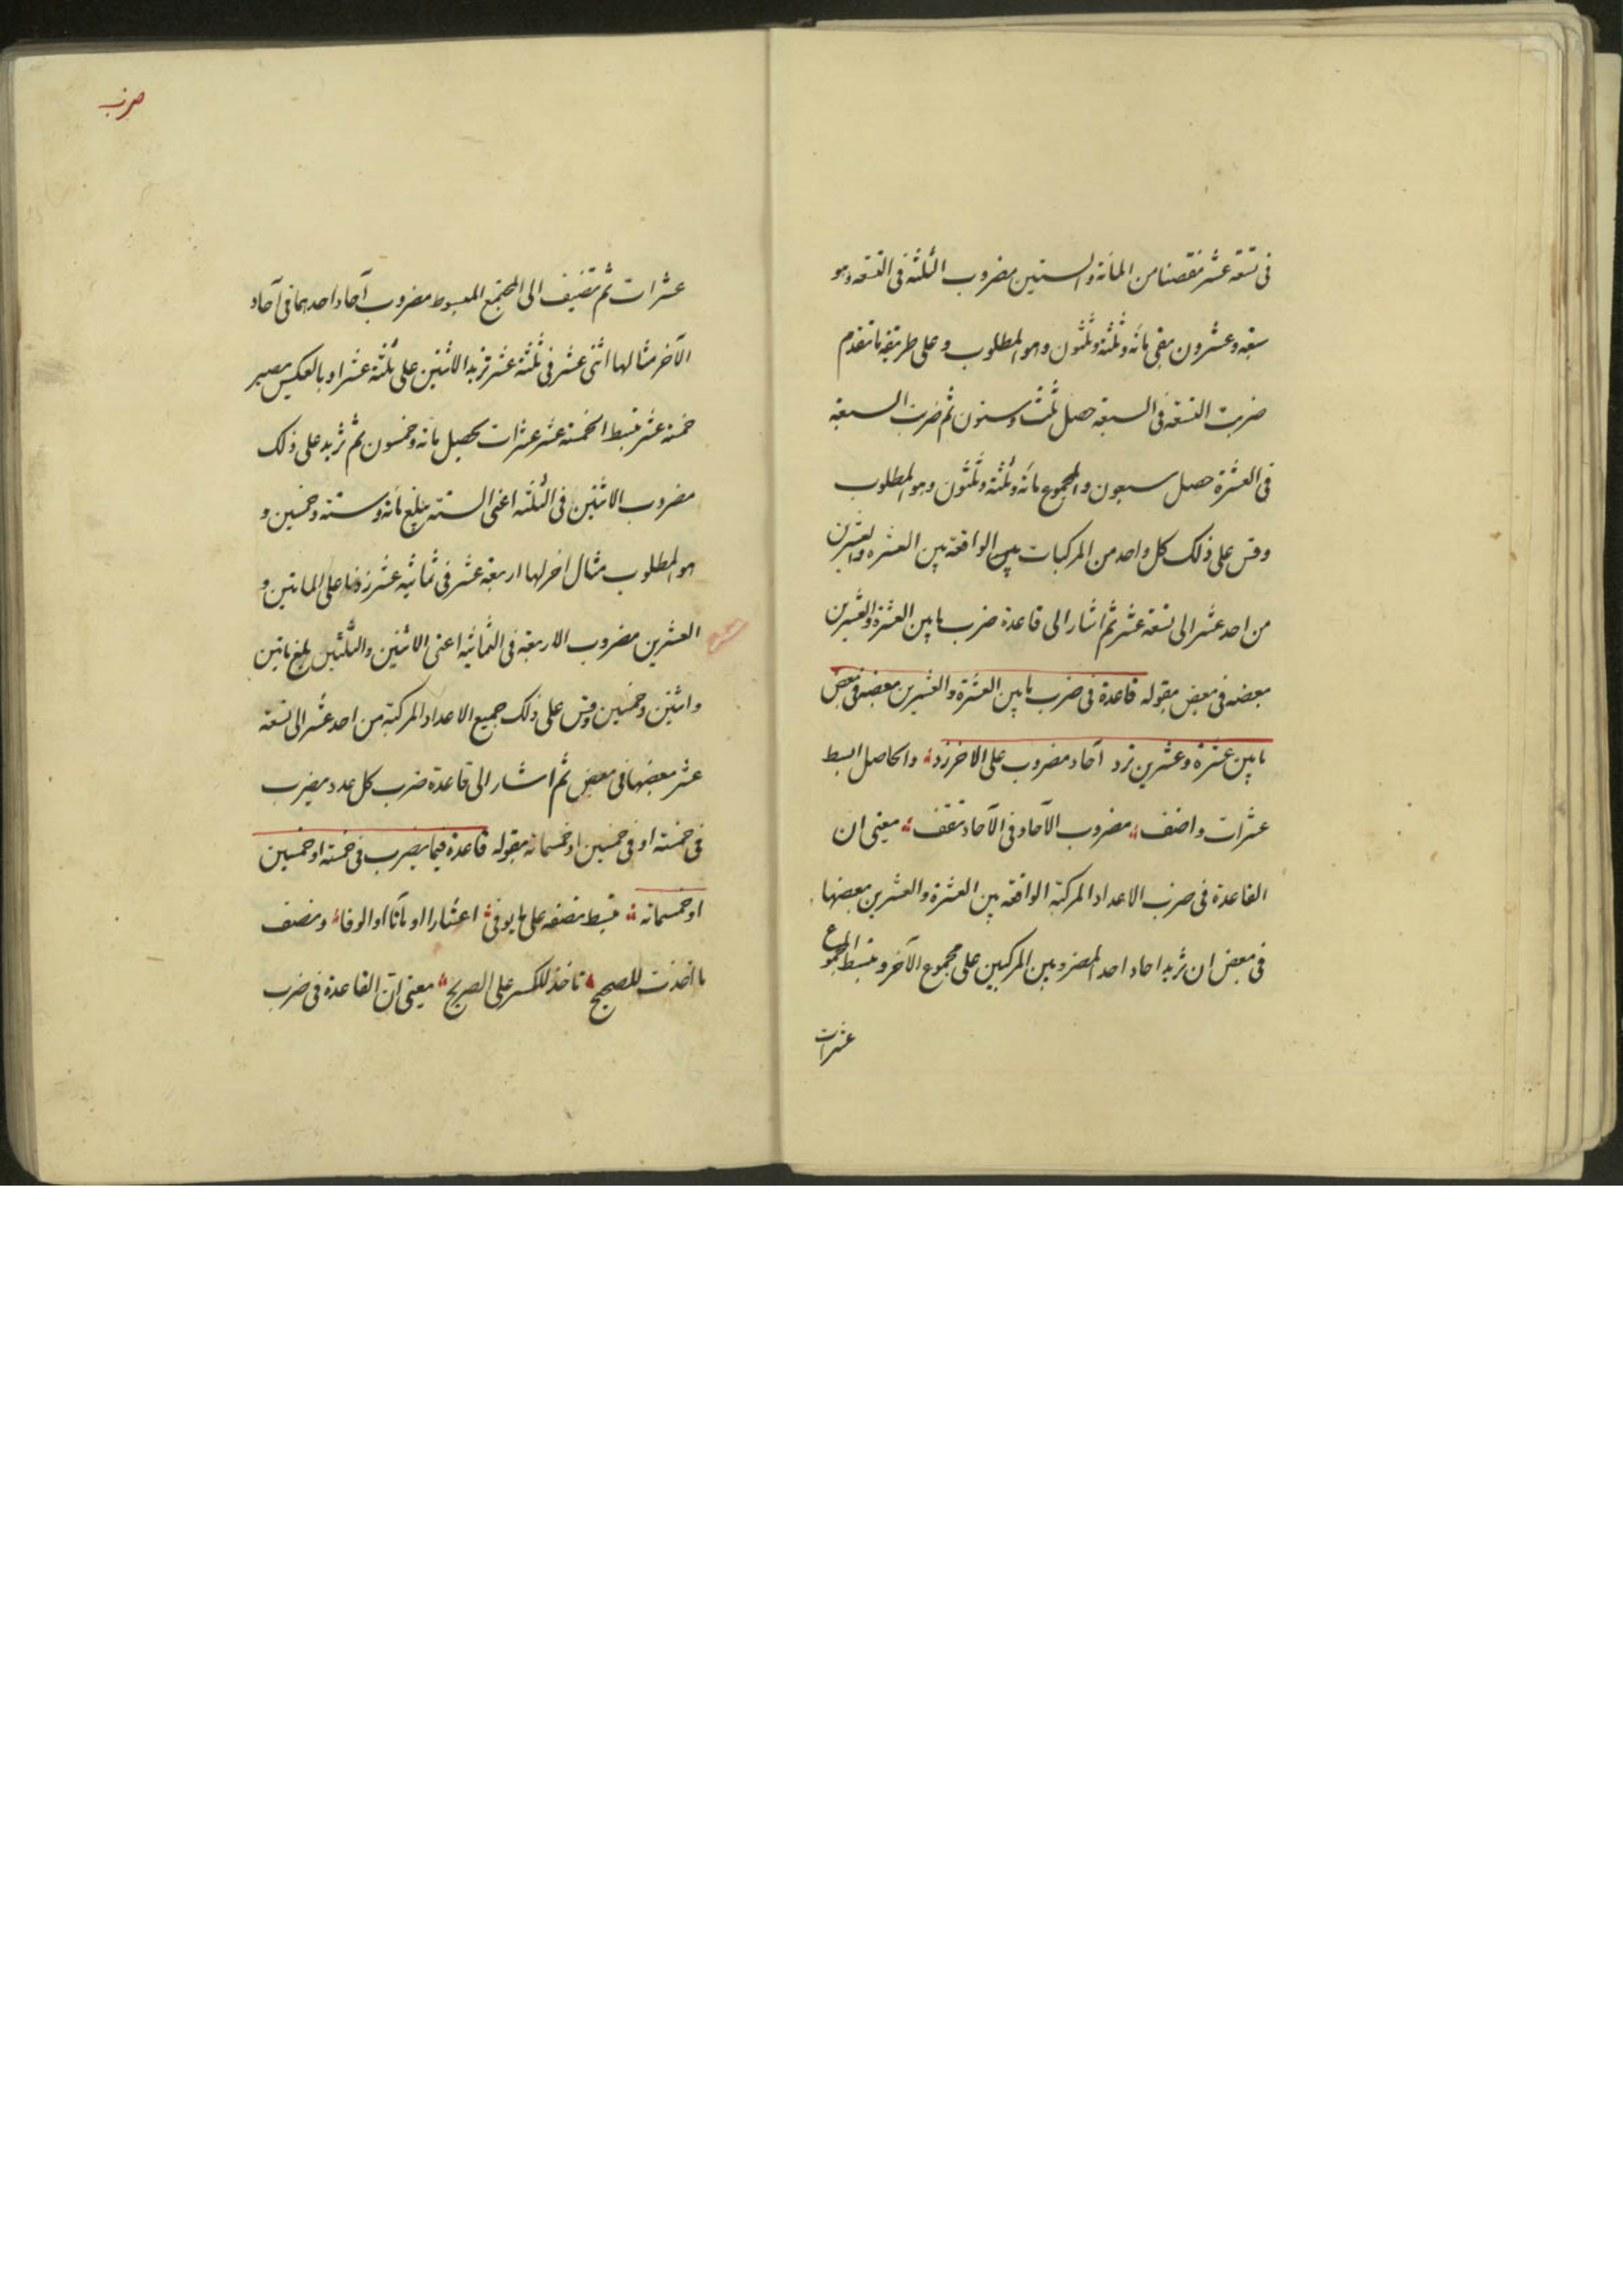 فى تسعة عشر نقصنا من المائة والستين مضروب الثلثة فى التسعة وهو
سبعة وعشرون بقى مائة وثلثة وثلثون وهو المطلوب وعلى طريقة ما تقدم
ضربت التسعة فى السبعة حصل ثلث وستون ثم ضرب السبعة
فى العشرة حصل سبعون والمجموع مائة وثلثة وثلثون وهو المطلوب
وقس على ذلك كل واحد من المركبات الواقعة بين العشرة والعشرين
من احد عشر الى تسعة عشر ثم اشار الى قاعدة ضرب ما بين العشرة والعشرين
بعضه فى بعض بقوله قاعدة فى ضرب ما بين العشرة والعشرين بعضه فى بعض
ما بين عشرة وعشرين ترد آحاد مضروب على الاخر زد والحاصل ابسط
عشرات واضف مضروب الآحاد فى الآحاد تقف يعنى ان
القاعدة فى ضرب الاعداد المركبة الواقعة بين العشرة والعشرين بعضها
فى بعض ان تزيد احاد احد المضروبين المركبين على مجموع الآخر وتبسط المجموع
عشرات
ضرب
عشرات ثم تضيف الى المجتمع المبسوط مضروب آحاد احدهما فى آحاد
الآخر مثالها اثنى عشر فى ثلثة عشر تزيد الاثنين على ثلثة عشر او بالعكس يصير
خمسة عشر تبسط الخمسة عشر عشرات يحصل مائة وخمسون ثم تزيد على ذلك
مضروب الاثنين فى الثلثة اعنى الستة يبلغ مائة وستة وخمسين و
هو المطلوب مثال اخر لها اربعة عشر فى ثمانية عشر زدنا على المائتين و
العشرين مضروب الاربعة فى الثمانية اعنى الاثنين والثلثين بلغ مائتين
واثنين وخمسين وقس على ذلك جميع الاعداد المركبة من احد عشر الى تسعة
عشر بعضها فى بعض ثم اشار الى قاعدة ضرب كل عدد يضرب
فى خمسة او فى خمسين او خمسمائة بقوله قاعدة فيما يضرب فى خمسة او خمسين
او خمسمائة تبسط نصفه على ما يوفى اعشارا او مآتا او الوفا ونصف
ما اخذت للصحيح تاخذ للكسر على الصريح يعنى ان القاعدة فى ضرب